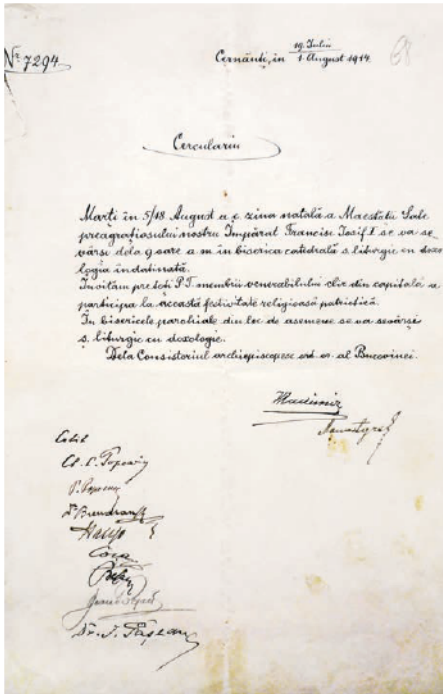 Nr. 7294
Cernăuți, în 19 Iuliu
1 August 1914
68
Cercularin
Marți în 5/18 August a. c. ziua natală a Maestatei Sale
preagrațiosului nostru Împărat Francisc Iosif I se va se-
vârși dela 9 oare a. m. în biserica catedrală s. liturgie cu doxo-
logia îndatinată.
Invităm pre toți P. T. membrii venerabilului clir din capitală a
participa la această festivitate religioasă patriotică.
În bisericele parohiale din loc de asemene se va sevârși
s. liturgie cu doxologie.
Dela Consistoriul archiepiscopesc ort. or. al Bucovinei.
Cetit
Dr. I.